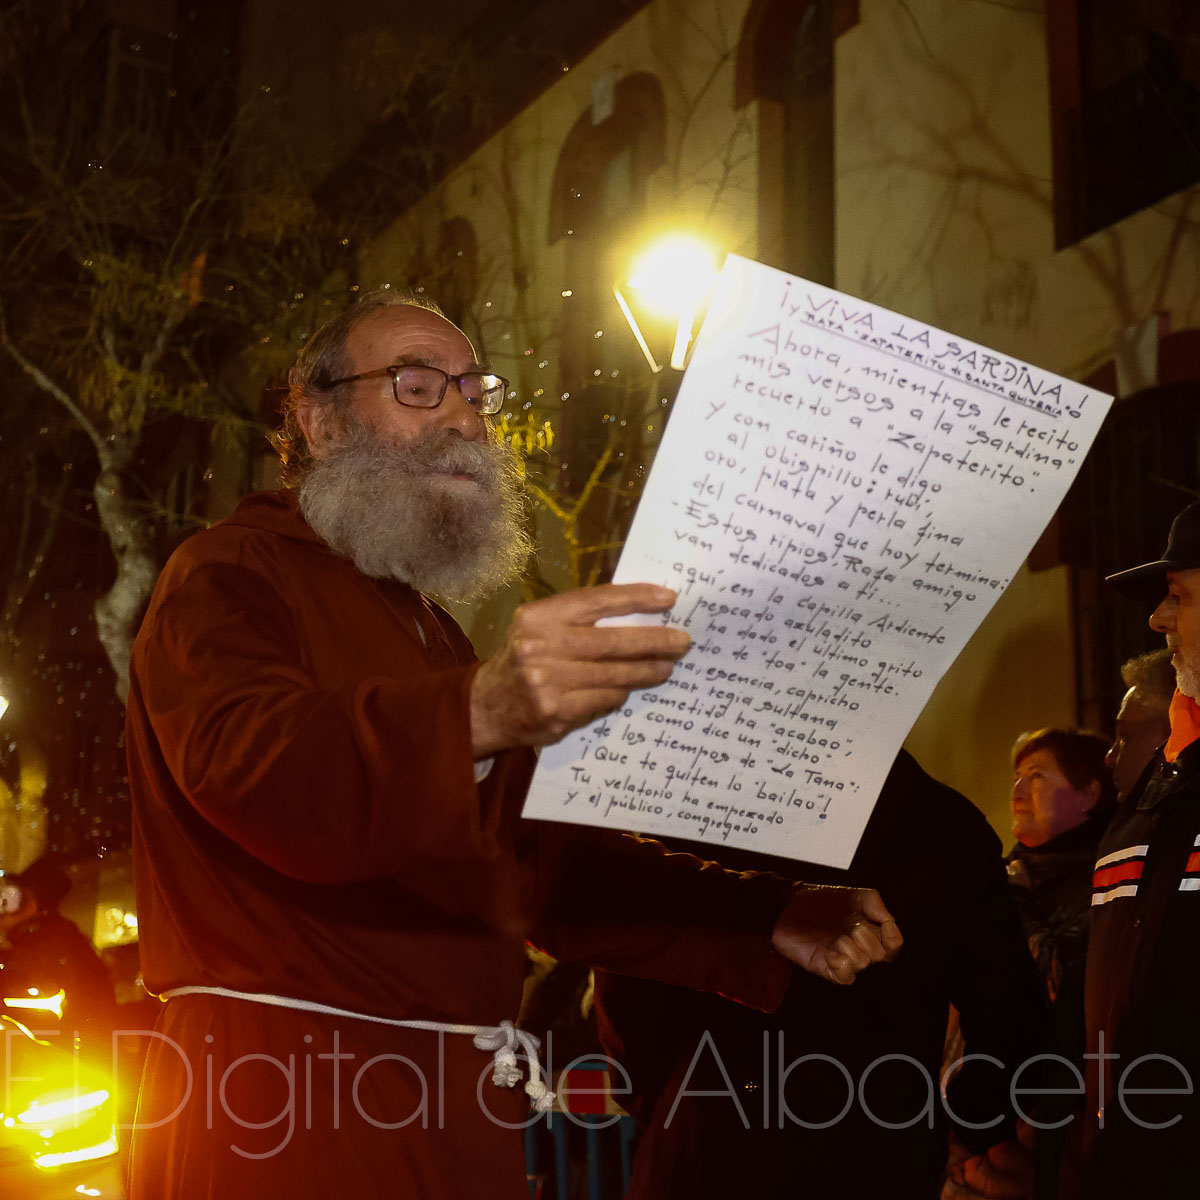 ¡VIVA LA SARDINA!
¡y RAFA "ZAPATERITO" de SANTA QUITERIA"
Ahora, mientras le recito
mis versos a la "sardina"
recuerdo a "Zapaterito".
y con cariño le digo
al Obispillo: rubí,
oro, plata y perla fina
del carnaval que hoy termina:
-Estos ripios, Rafa amigo
van dedicados a ti...
... aquí, en la Capilla Ardiente
pescado azuladito
que ha dado el último grito
dio de "toa" la gente.
esencia, capricho
mar regia sultana
cometido ha "acabao",
como dice un "dicho"
de los tiempos de "La Tana":
¡Que te quiten lo "bailao"!
Tu velatorio ha empezado
y el público, congregado
El Digital de Albacete